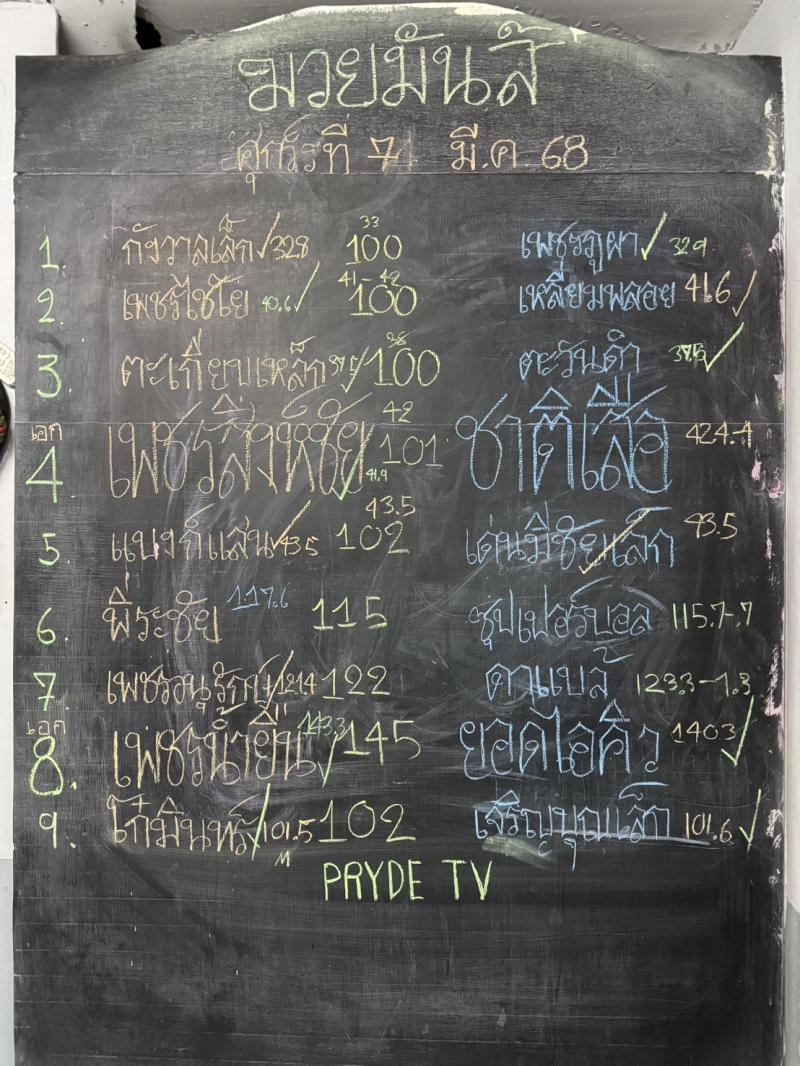 มวยมันส์
ศุกร์ที่ 7 มี.ค. 68
1. กังวาลเล็ก ✓ 32.8 33 100 เพชรภูผา ✓ 32.9
2. เพชรไชโย 40.6 ✓ 41-42 100 เหลี่ยมพลอย 41.6 ✓
3. ตะเกียบเหล็ก ✓ 38 100 ตะวันดำ ✓
เอก
4 เพชรสิงห์ชัย ✓ 41.9 42 101 ชาติเสือ 42.4-.4
5. แบงก์แสน ✓ 43.5 43.5 102 เด่นมีชัยเล็ก ✓ 43.5
6. พีระชัย 117.6 115 ซุปเปอร์บอล 115.7-.7
7. เพชรอนุรักษ์ 121.4 122 ดาแบล้ 123.3-1.3
เอก
8. เพชรน้ำยืน 143.3 ✓ 145 ยอดไอคิว 140.3 ✓
9. ✓ 101.5 102 เจริญบุญเล็ก 101.6 ✓
M
PRYDE TV